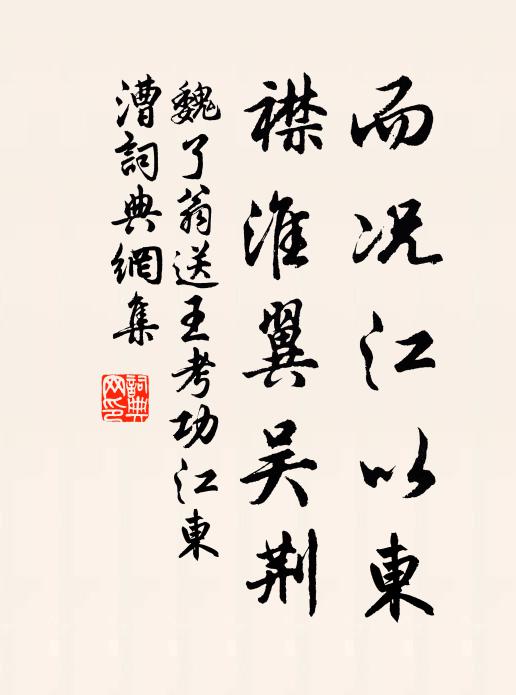 而况江以東
襟淮翼吴荆
魏了翁送王考功江東
漕詞典網集
詞典
网印